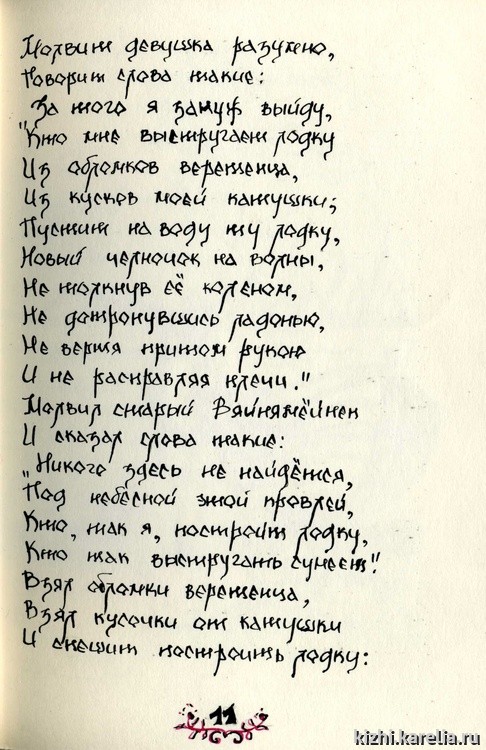 Молвит девушка разумно,
Говорит слова такие:
"За того я замуж выйду,
Кто мне выстругает лодку
Из обломков веретенца,
Из кусков моей катушки;
Пустит на воду ту лодку,
Новый челночок на волны,
Не толкнув её коленом,
Не дотронувшись ладонью,
Не вертя притом рукою
И не расправляя плечи."
Молвил старый Вяйнямёйнен
И сказал слова такие:
„Никого здесь не найдётся,
Под небесной этой кровлей,
Кто, как я, построит лодку,
Кто так выстругать сумеет!"
Взял обломки веретенца,
Взял кусочки от катушки
И спешит построить лодку:
11
kizhi.karelia.ru